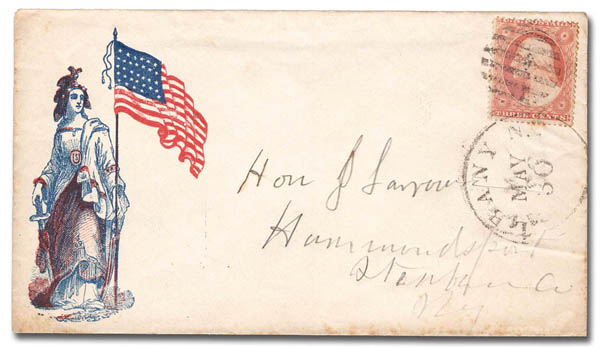 THREE CENTS
BANY
MAY
Hon J Larrow
Hammondsport
Steuben Co
NY